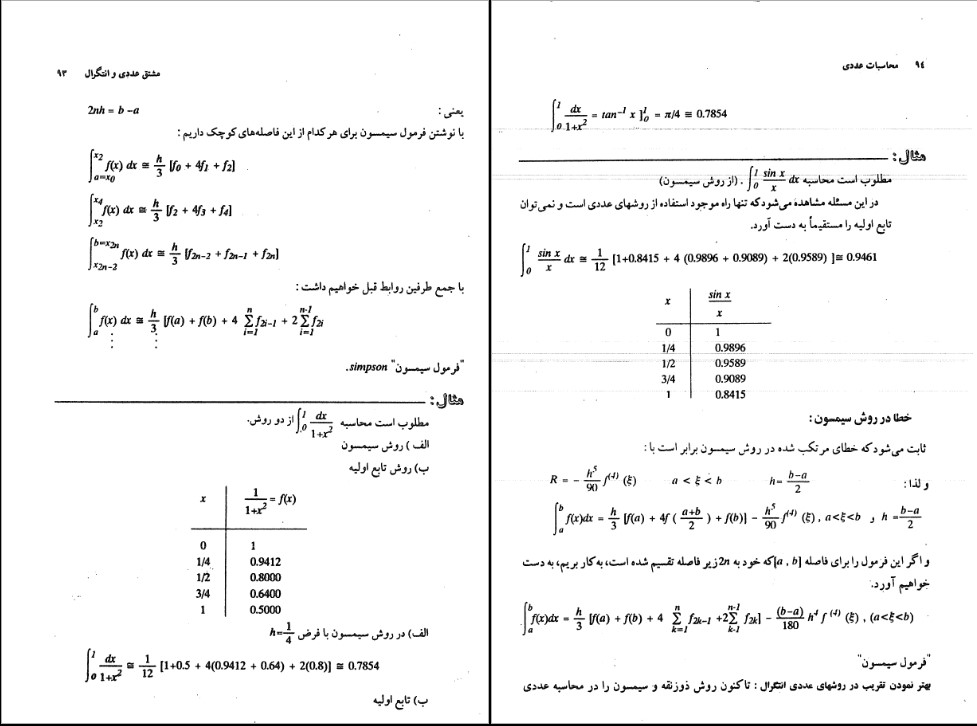 مشتق عددی و انتگرال ۹۳
یعنی : 2nh = b - a
با نوشتن فرمول سیمسون برای هر کدام از این فاصله‌های کوچک داریم :
∫_{a=x₀}^{x₂} f(x) dx ≅ h/3 [f₀ + 4f₁ + f₂]
∫_{x₂}^{x₄} f(x) dx ≅ h/3 [f₂ + 4f₃ + f₄]
∫_{x2n-2}^{b=x2n} f(x) dx ≅ h/3 [f2n-2 + f2n-1 + f2n]
با جمع طرفین روابط قبل خواهیم داشت :
∫_a^b f(x) dx ≅ h/3 [f(a) + f(b) + 4 Σ_{i=1}^{n} f2i-1 + 2 Σ_{i=1}^{n-1} f2i
⋮ ⋮
"فرمول سیمسون" simpson.
مثال :
مطلوب است محاسبه ∫_0^1 dx/1+x² از دو روش.
الف ) روش سیمسون
ب) روش تابع اولیه
x 1/1+x² = f(x)
0 1
1/4 0.9412
1/2 0.8000
3/4 0.6400
1 0.5000
الف) در روش سیمسون با فرض h=1/4
∫_0^1 dx/1+x² ≅ 1/12 [1+0.5 + 4(0.9412 + 0.64) + 2(0.8)] ≅ 0.7854
ب) تابع اولیه
۹۴ محاسبات عددی
∫_0^1 dx/1+x² = tan⁻¹ x ]_0^1 = π/4 ≅ 0.7854
مثال :
مطلوب است محاسبه ∫_0^1 sin x/x dx . (از روش سیمسون)
در این مسئله مشاهده می‌شود که تنها راه موجود استفاده از روشهای عددی است و نمی‌توان
تابع اولیه را مستقیماً به دست آورد.
∫_0^1 sin x/x dx ≅ 1/12 [1+0.8415 + 4 (0.9896 + 0.9089) + 2(0.9589) ]≅ 0.9461
x sin x/x
0 1
1/4 0.9896
1/2 0.9589
3/4 0.9089
1 0.8415
خطا در روش سیمسون :
ثابت می‌شود که خطای مرتکب شده در روش سیمسون برابر است با :
R = - h⁵/90 f⁽⁴⁾ (ξ) a < ξ < b h= b-a/2
و لذا :
∫_a^b f(x)dx = h/3 [f(a) + 4f ( a+b/2 ) + f(b)] - h⁵/90 f⁽⁴⁾ (ξ) , a<ξ<b و h = b-a/2
و اگر این فرمول را برای فاصله [a , b] که خود به 2n زیر فاصله تقسیم شده است، به کار بریم، به دست
خواهیم آورد.
∫_a^b f(x)dx = h/3 [f(a) + f(b) + 4 Σ_{k=1}^{n} f2k-1 +2 Σ_{k-1}^{n-1} f2k] - (b-a)/180 h⁴ f ⁽⁴⁾ (ξ) , (a<ξ<b)
"فرمول سیمسون"
بهتر نمودن تقریب در روشهای عددی انتگرال : تاکنون روش ذوزنقه و سیمسون را در محاسبه عددی